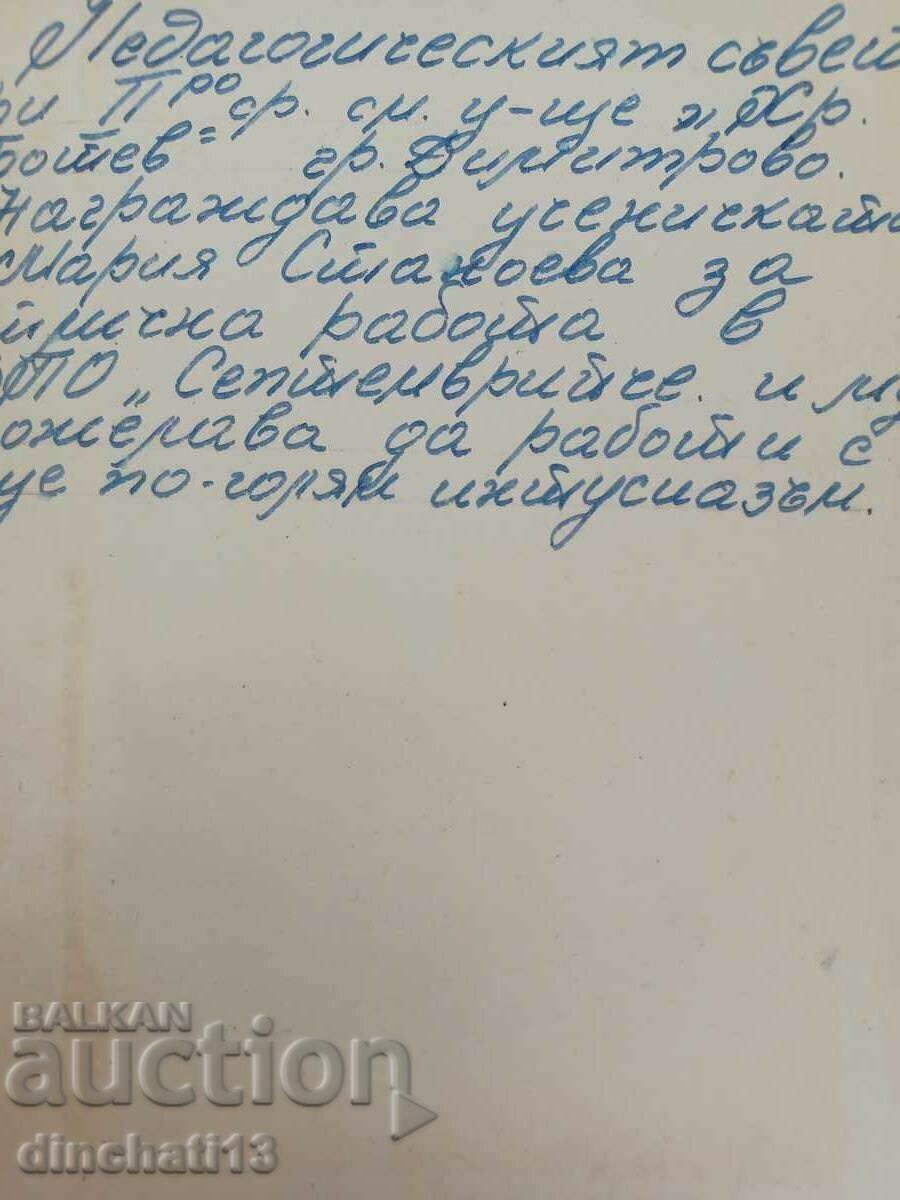 Педагогическият съвет
ри П ро ср. см. у-ще „Хр.
Ботев" гр. Димитрово.
Награждава ученичката
Мария Станоева за
лична работа в
ДПО „Септемврийче. и му
ожелава да работи с
ще по-горям интусиазъм.
BALKAN
auction
dinchati13